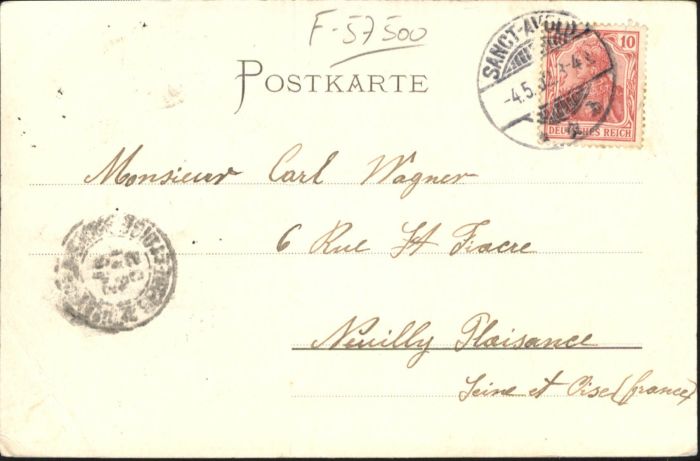 F-57500
POSTKARTE
SANCT-AVOLD
-4.5.02.3-4N
10
DEUTSCHES REICH
Monsieur Carl Wagner
6 Rue St Fiacre
Neuilly Plaisance
Seine et Oise (france)